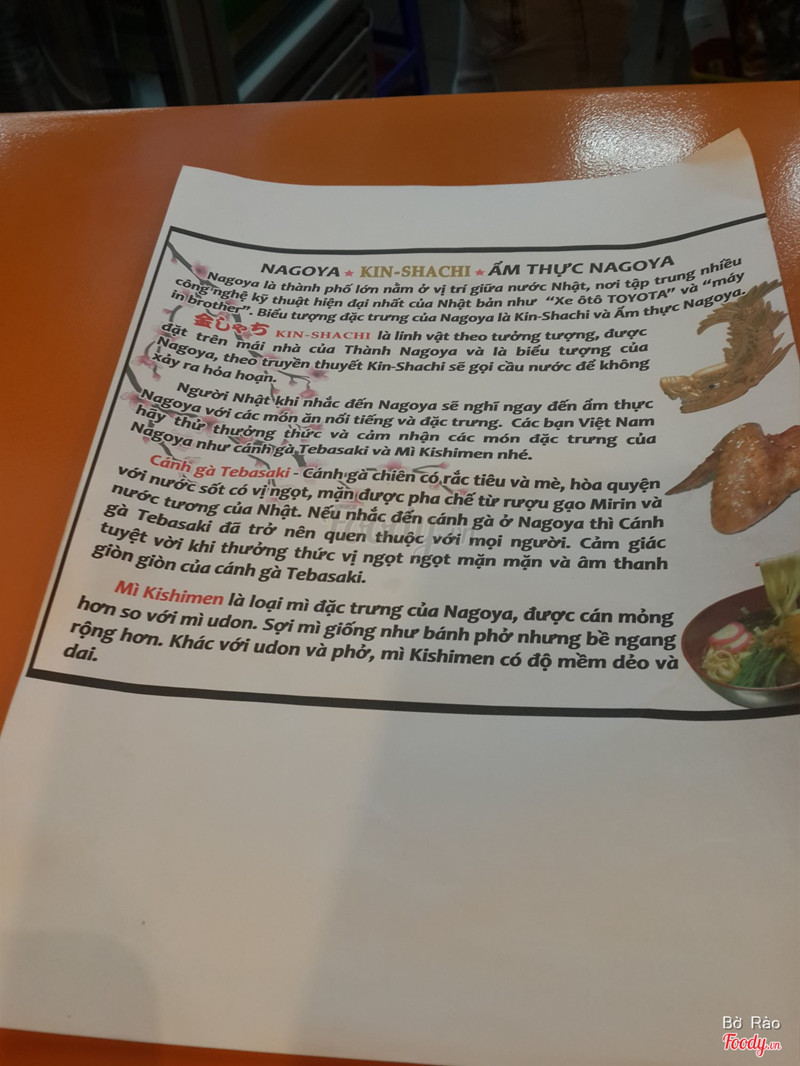 NAGOYA ★ KIN-SHACHI ★ ẨM THỰC NAGOYA
Nagoya là thành phố lớn nằm ở vị trí giữa nước Nhật, nơi tập trung nhiều
công nghệ kỹ thuật hiện đại nhất của Nhật bản như "Xe ôtô TOYOTA" và "máy
in brother". Biểu tượng đặc trưng của Nagoya là Kin-Shachi và Ẩm thực Nagoya.
金しゃち KIN-SHACHI là linh vật theo tưởng tượng, được
đặt trên mái nhà của Thành Nagoya và là biểu tượng của
Nagoya, theo truyền thuyết Kin-Shachi sẽ gọi cầu nước để không
xảy ra hỏa hoạn.
Người Nhật khi nhắc đến Nagoya sẽ nghĩ ngay đến ẩm thực
Nagoya với các món ăn nổi tiếng và đặc trưng. Các bạn Việt Nam
hãy thử thưởng thức và cảm nhận các món đặc trưng của
Nagoya như cánh gà Tebasaki và Mì Kishimen nhé.
Cánh gà Tebasaki - Cánh gà chiên có rắc tiêu và mè, hòa quyện
với nước sốt có vị ngọt, mặn được pha chế từ rượu gạo Mirin và
nước tương của Nhật. Nếu nhắc đến cánh gà ở Nagoya thì Cánh
gà Tebasaki đã trở nên quen thuộc với mọi người. Cảm giác
tuyệt vời khi thưởng thức vị ngọt ngọt mặn mặn và âm thanh
giòn giòn của cánh gà Tebasaki.
Mì Kishimen là loại mì đặc trưng của Nagoya, được cán mỏng
hơn so với mì udon. Sợi mì giống như bánh phở nhưng bề ngang
rộng hơn. Khác với udon và phở, mì Kishimen có độ mềm dẻo và
dai.
Bờ Rào
Foody.vn